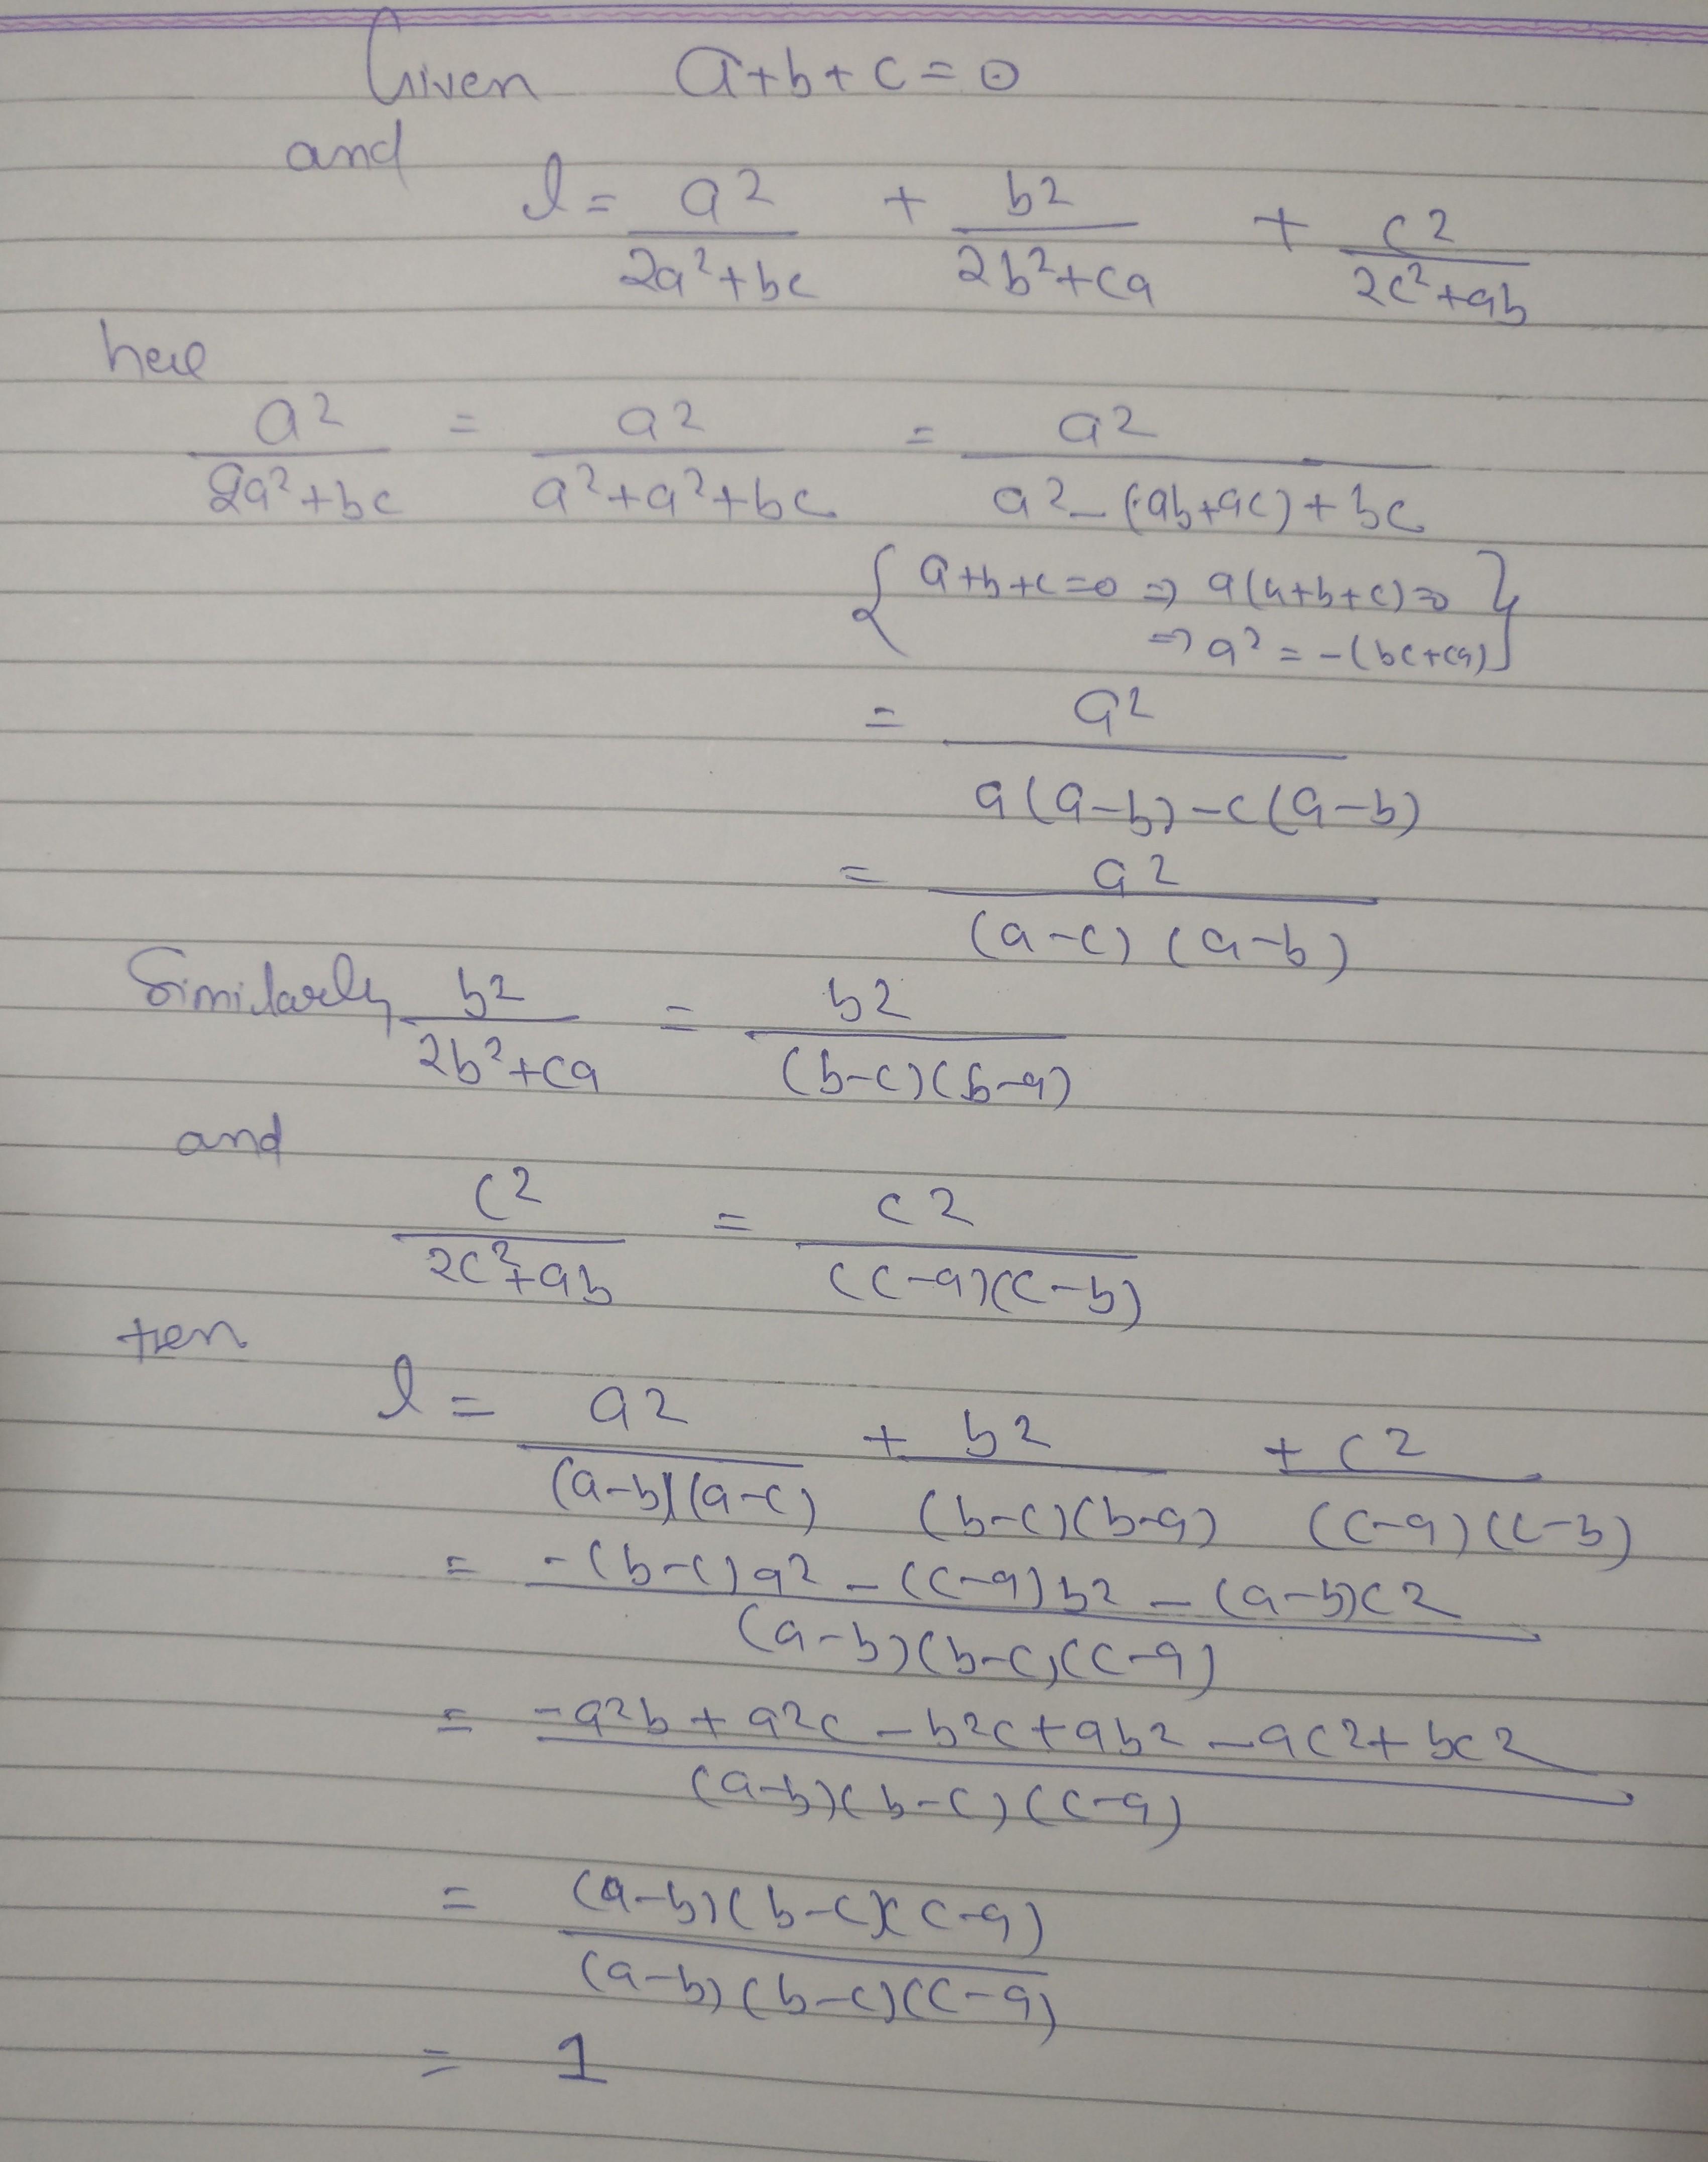 Given a+b+c=0
and
l = a²/(2a²+bc) + b²/(2b²+ca) + c²/(2c²+ab)
here
a²/(2a²+bc) = a²/(a²+a²+bc) = a²/(a²-(ab+ac)+bc)
{a+b+c=0 ⇒ a(a+b+c)=0
⇒ a² = -(bc+ca)}
= a²/(a(a-b)-c(a-b))
= a²/((a-c)(a-b))
Similarly b²/(2b²+ca) = b²/((b-c)(b-a))
and
c²/(2c²+ab) = c²/((c-a)(c-b))
then
l = a²/((a-b)(a-c)) + b²/((b-c)(b-a)) + c²/((c-a)(c-b))
= (-(b-c)a² - (c-a)b² - (a-b)c²)/((a-b)(b-c)(c-a))
= (-a²b + a²c - b²c + ab² - ac² + bc²)/((a-b)(b-c)(c-a))
= ((a-b)(b-c)(c-a))/((a-b)(b-c)(c-a))
= 1